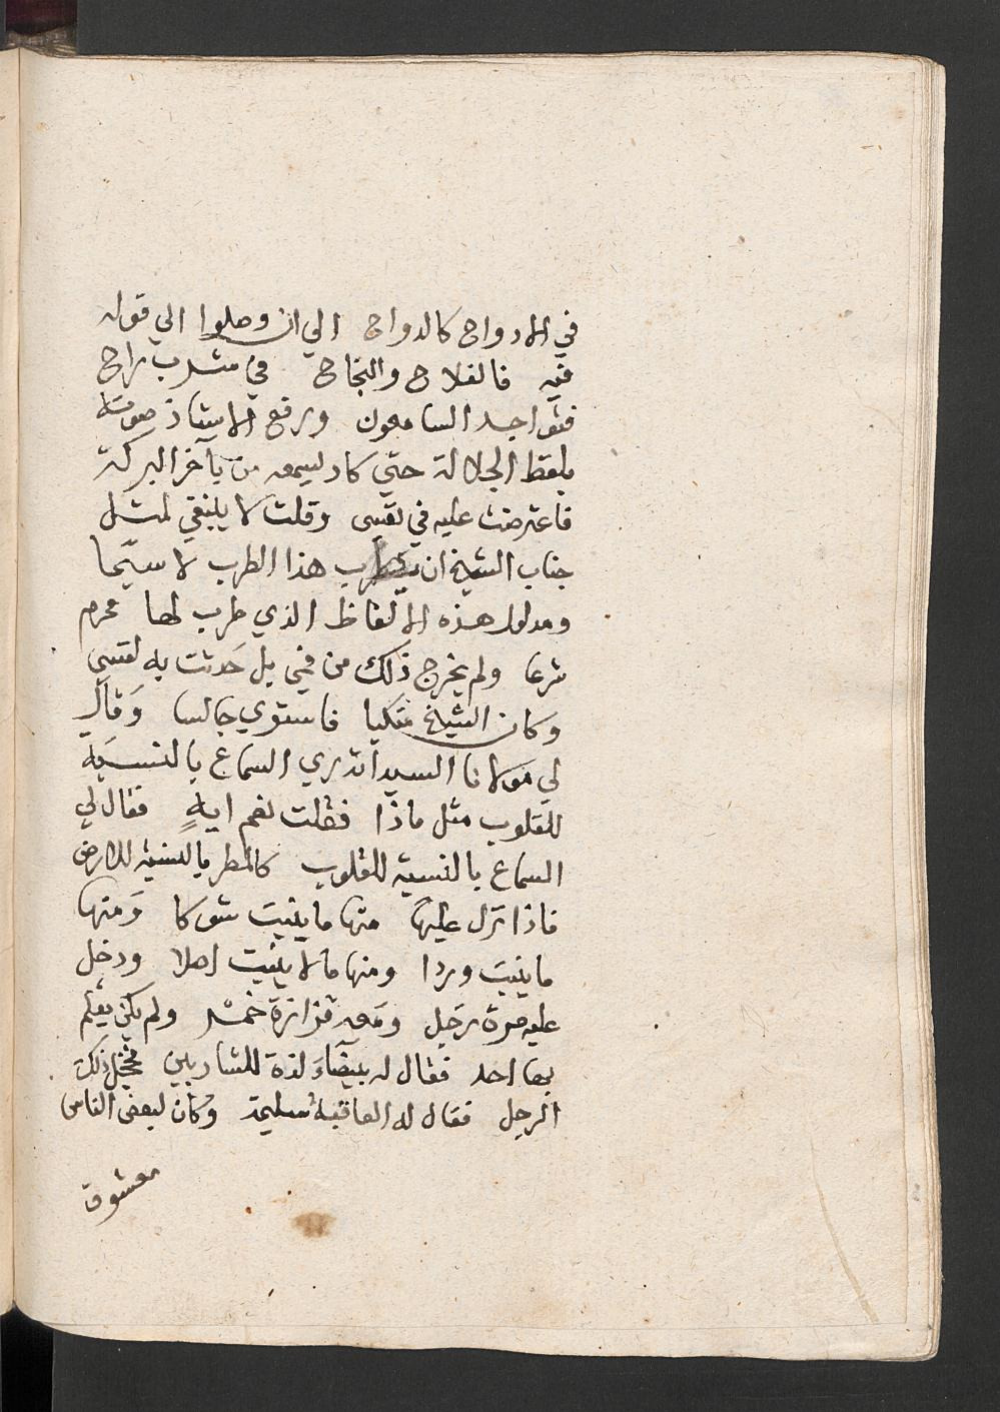 في الادواح كالدواح الي ان وصلوا الي قوله
فيه فالفلاح والنجاح في مشرب راح
فتواجد السامعون ورفع الاستاذ صوته
بلفظ الجلالة حتي كاد ليسمعه من بآخر البركة
فاعترضت عليه في نفسي وقلت لا ينبغي لمثل
جناب الشيخ ان يطرب هذا الطرب لا سيما
ومدلول هذه الالفاظ الذي طرب لها محرم
شرعا ولم يخرج ذلك من فمي بل حَدثت به نفسي
وكان الشيخ متكيا فاستوي جالسا وَقال
لي مولانا السيد اتدري السماع بالنسبَة
للقلوب مثل ماذا فقلت نعم ايهٍ فقال لي
السماع بالنسبة للقلوب كالمطر بالنسبة للارض
فاذا نزل عليها منها ما ينبت شوكا وَمنها
ما ينبت وردا ومنها ما لا ينبت اصلا ودخل
عليه مرة رجل ومَعه قزازة خمر ولم يكن يعلم
بها احد فقال له بيضَاء لذة للشاربين فخجل ذلك
الرجل فقال له العاقبة سليمة وكان لبعض الناس
معشوق